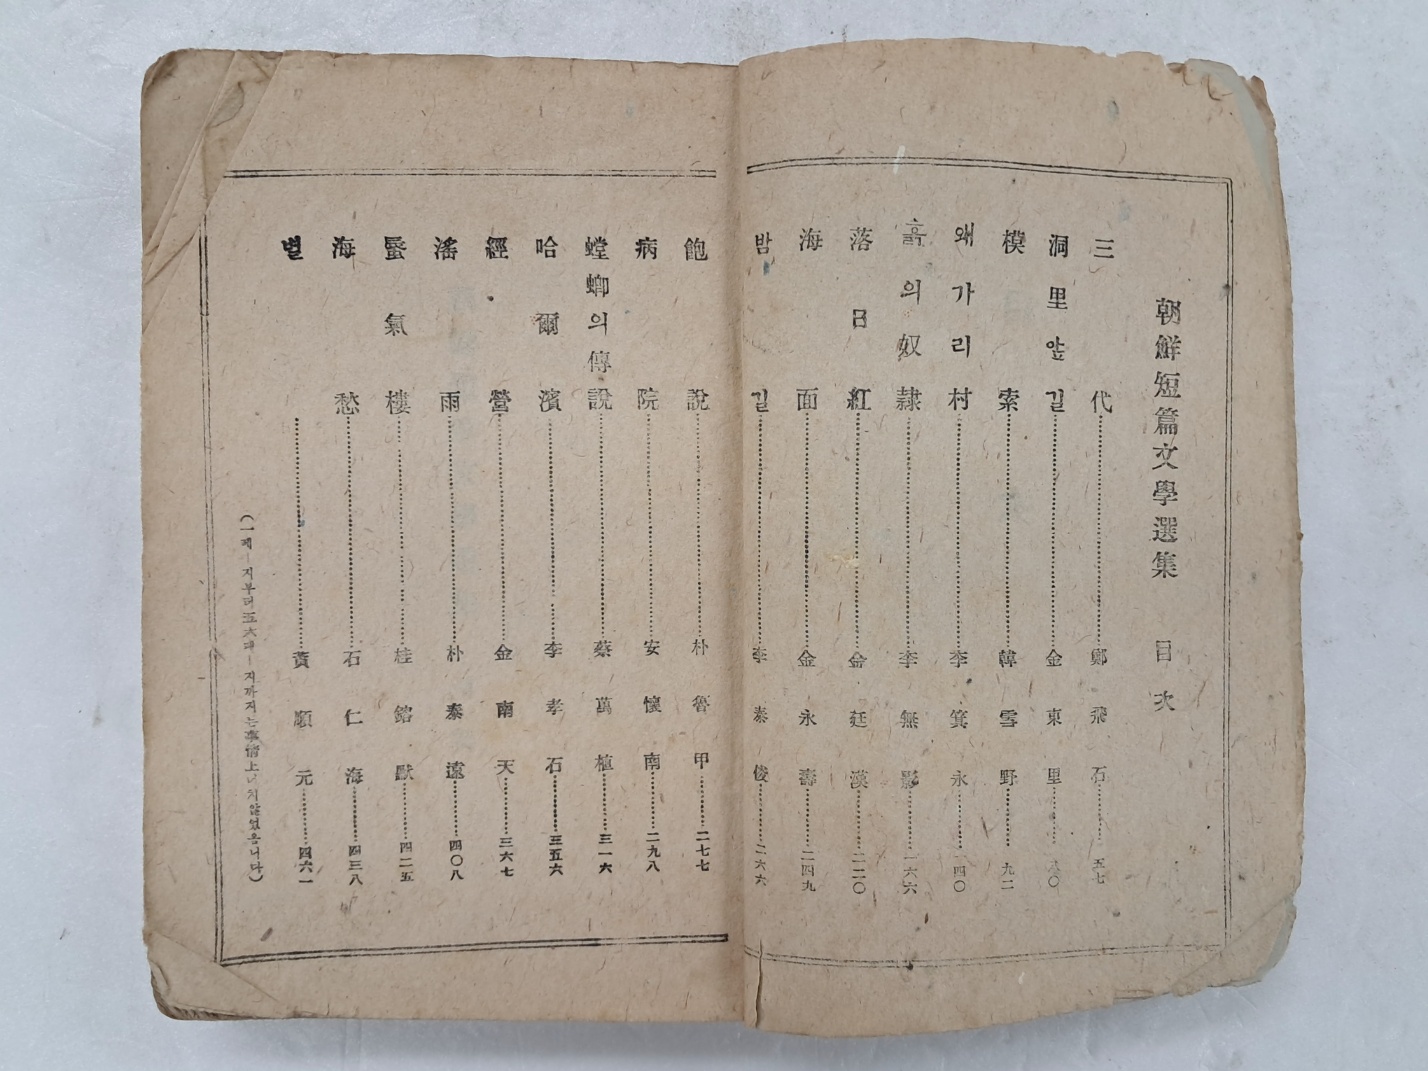 朝鮮短篇文學選集 目次
三代 鄭飛石 五七
洞里앞길 金東里 八〇
模索 韓雪野 九二
왜가리村 李箕永 一四〇
흙의奴隷 李無影 一六六
落日紅 金廷漢 二二〇
海面 金永壽 二四九
밤길 李泰俊 二六六
飽說 朴魯甲 二七七
病院 安懷南 二九八
螳螂의傳說 蔡萬植 三一六
哈爾濱 李孝石 三五六
經營 金南天 三六七
滛雨 朴泰遠 四〇八
蜃氣樓 桂鎔默 四二五
海愁 石仁海 四三八
별 黃順元 四六一
(一페ー지부터五六페ー지까지는事情上너치않었읍니다)